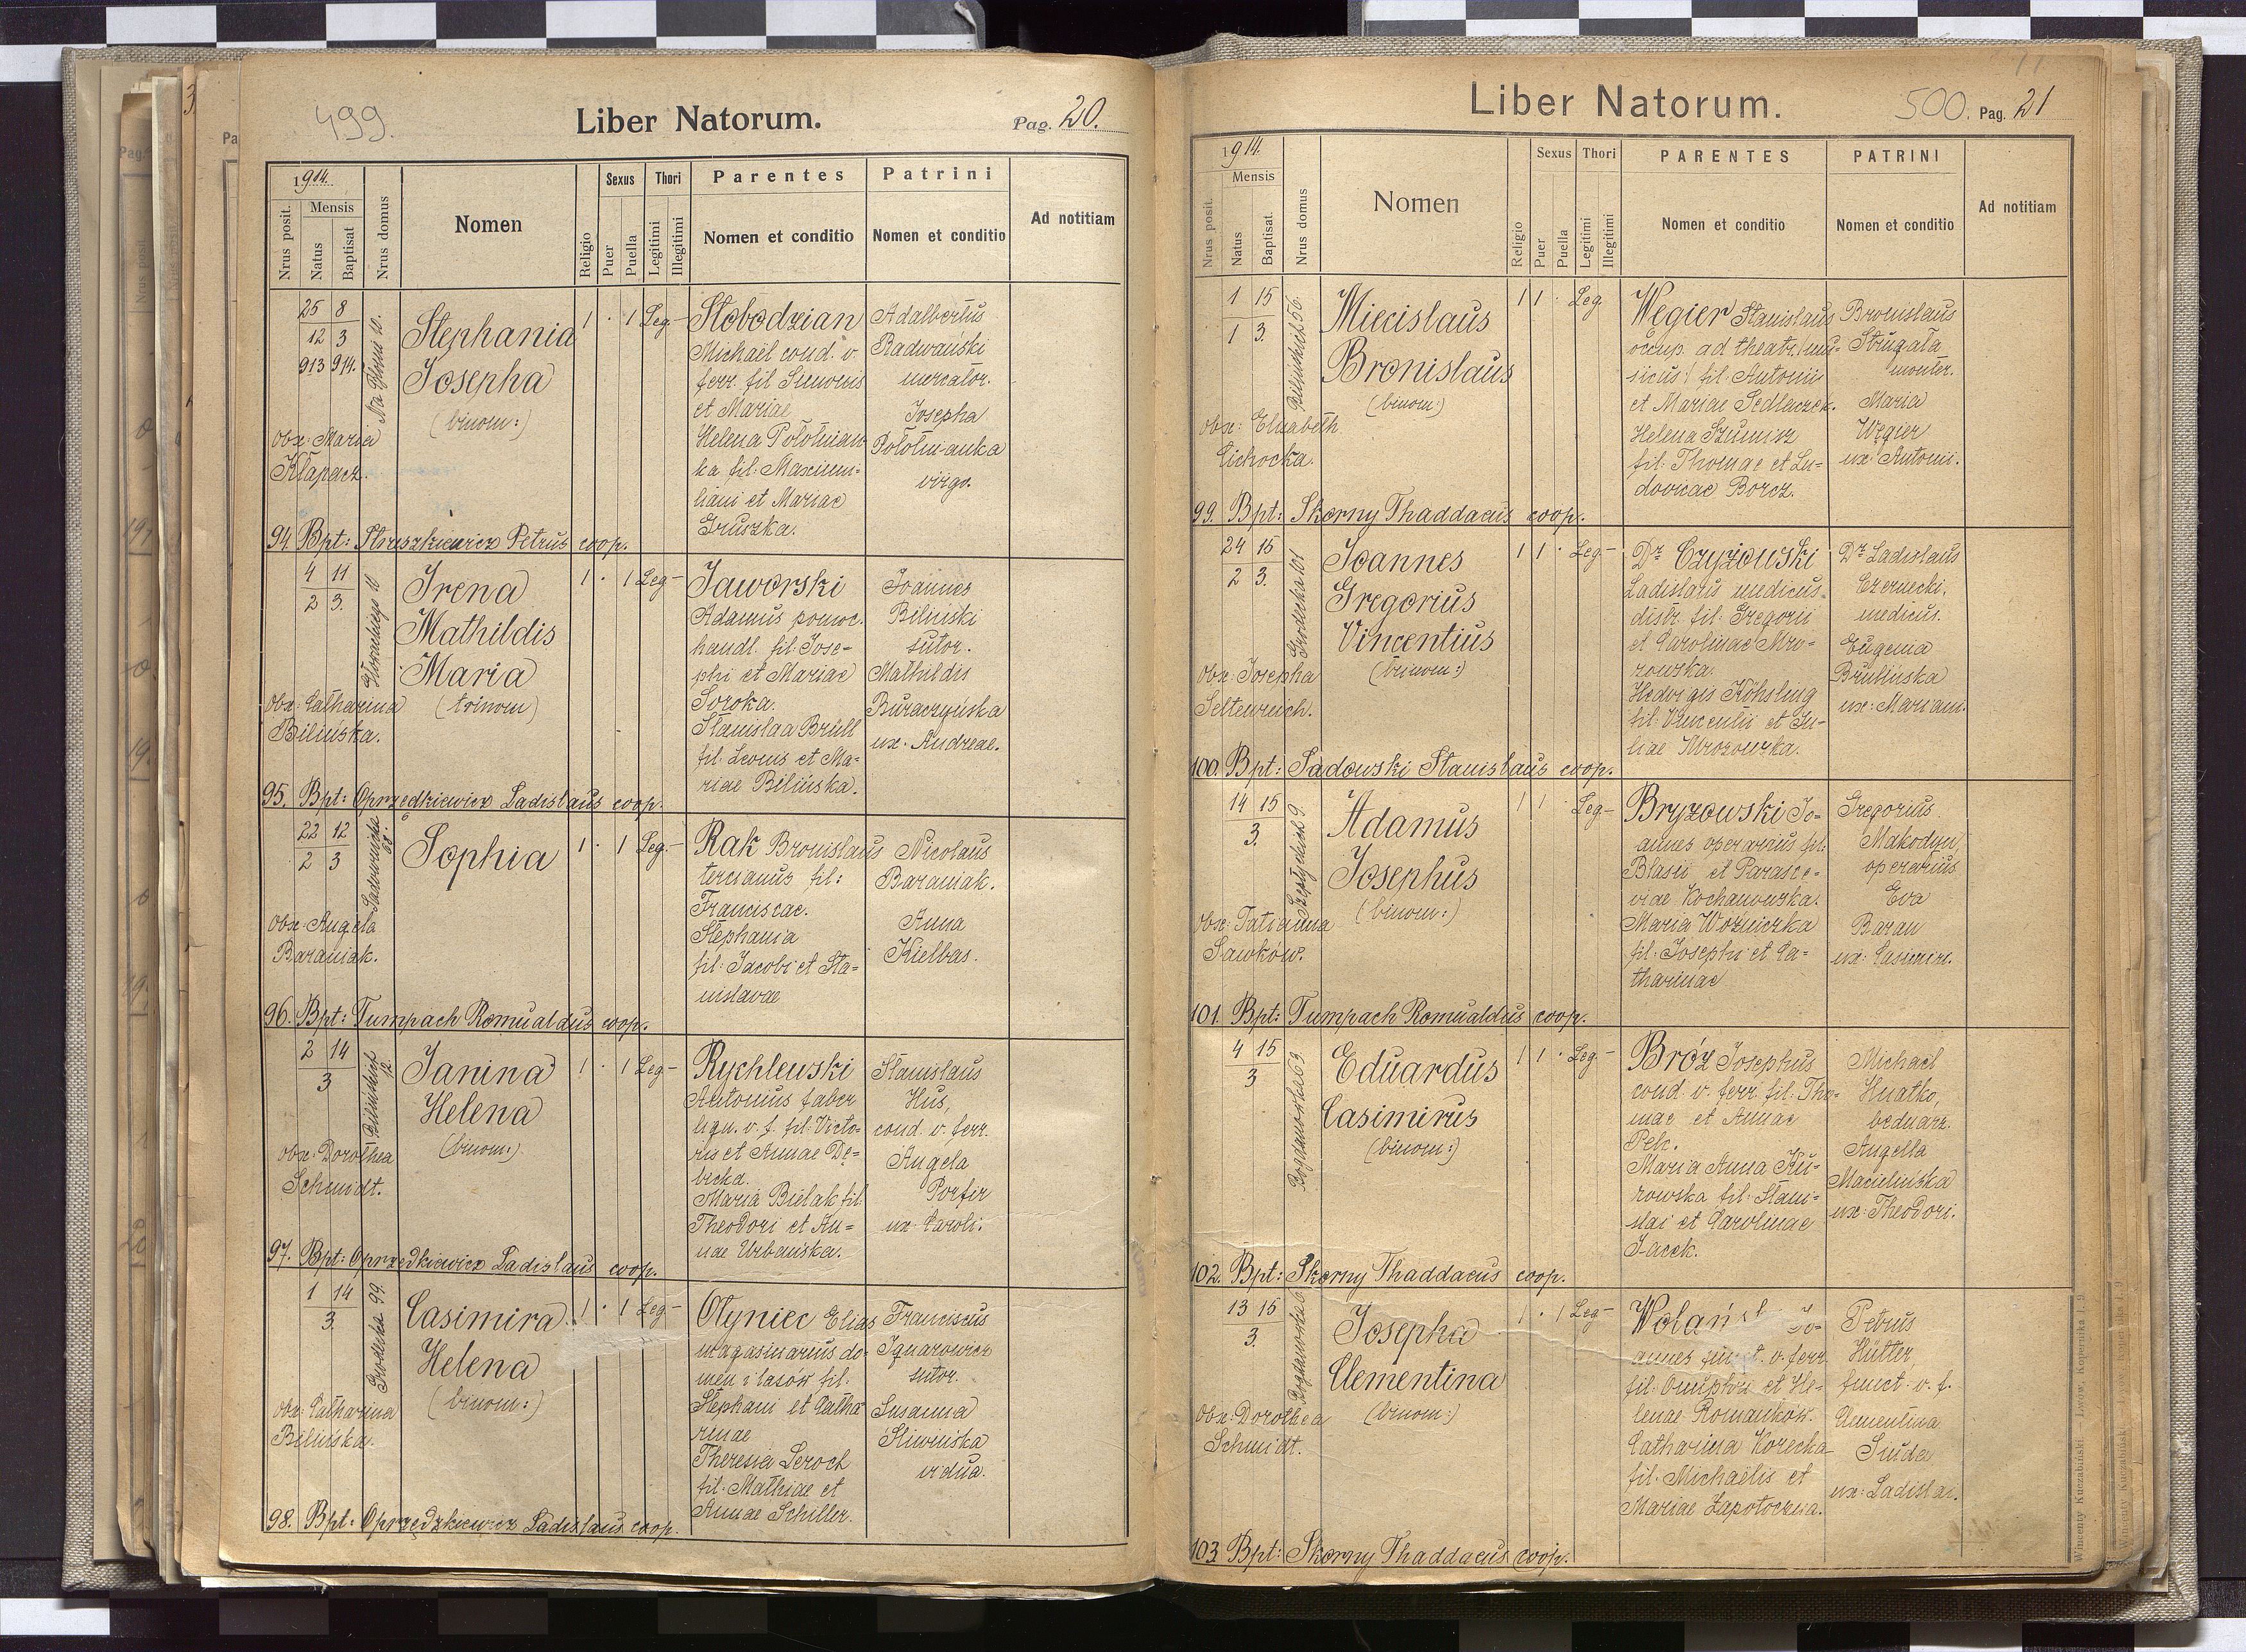 499.
Liber Natorum.
Pag. 20.
1914.
Nrus posit.
Mensis
Natus
Baptisat
Nrus domus
Nomen
Religio
Sexus
Puer
Puella
Thori
Legitimi
Illegitimi
Parentes
Nomen et conditio
Patrini
Nomen et conditio
Ad notitiam
25 8
12 3
913 914.
Na Błonie 10.
Stephania
Josepha
(binom:)
1 · 1 Leg.-
Słobodzian
Michael cond. v.
ferr. fil Simonis
et Mariae
Helena Połotnian
ka fil. Maximi=
liani et Mariae
Gruszka.
Adalbertus
Radwański
mercator.
Josepha
Połotnianka
virgo.
obx: Maria
Kłapacz.
94 Bpt: Petrus coop.
4 11
2 3.
Irena
Mathildis
Maria
(trinom)
1 · 1 Leg-
Jaworski
Adamus pomoc.
handl. fil. Jose-
phi et Mariae
Soroka.
Stanislaa Brüll
fil. Leonis et Ma-
riae Bilińska.
Joannes
Biliński
sutor.
Mathildis
Buraczyńska
ux. Andreae.
obx. Catharina
Bilińska.
95. Bpt: Oprzędkiewicz Ladislaus coop.
22 12
2 3
Sophia
1 · 1 Leg.-
Rak Bronislaus
tercianus fil:
Franciscae.
Stephania
fil: Jacobi et Sta=
nislavae
Nicolaus
Baraniak.
Anna
Kielbas.
obx: Angela
Baraniak.
96. Bpt: Tumpach Romualdus coop.
2 14
3
Bilińskich 12.
Janina
Helena
(binom:)
1 · 1 Leg-
Rychlewski
Antonius faber
lign. v. f. fil. Victo-
ris et Annae Dę=
bicka.
Maria Bielak fil.
Theodori et An=
nae Urbańska.
Stanislaus
Hus,
cond. v. ferr.
Angela
Porfir
ux. Caroli.
obx: Dorothea
Schmidt.
97. Bpt: Oprzędkiewicz Ladislaus coop.
1 14
3.
Grodecka 99.
Casimira
Helena
(binom:)
1 · 1 Leg-
Olyniec Elias
magasinarius do-
men i lasów fil.
Stephani et Catha
rinae
Theresia Leroch
fil. Mathiae et
Annae Schiller.
Franciscus
Ignarowicz
sutor.
Susanna
Śliwińska
vidua.
obx. Catharina
Bilińska.
98. Bpt: Oprzędzkiewicz Ladislaus coop.
Liber Natorum.
500. Pag. 21
1914.
Nrus posit.
Mensis
Natus
Baptisat.
Nrus domus
Nomen
Religio
Sexus
Puer
Puella
Thori
Legitimi
Illegitimi
PARENTES
Nomen et conditio
PATRINI
Nomen et conditio
Ad notitiam
1 15
1 3.
Bilińskich 56.
Miecislaus
Bronislaus
(binom:)
1 1 · Leg.
Węgier Stanislaus
occup. ad theatr. (mu=
sicus) fil. Antonii
et Mariae Sedlaczek.
Helena Szumisz
fil. Thomae et Lu=
dovicae Borcz.
Bronislaus
Strugała
monter.
Maria
Węgier
ux. Antonii.
obx: Elisabeth
Cichocka.
99. Bpt: Skorny Thaddaeus coop.
24 15
2 3.
Grodecka 101
Joannes
Gregorius
Vincentius
1 1 · Leg.-
Dr Czyżowski
Ladislaus medicus
distr. fil. Gregorii
et Carolinae Mro=
zowska.
Hedvigis Köhsling
fil. Vincentii et Ju-
liae Mrozowska.
Dr Ladislaus
Czernecki,
medicus.
Eugenia
Brulińska
ux: Mariani.
obx: Josepha
Seltenreich.
100. Bpt: Sadowski Stanislaus coop.
14 15
3.
Szeptyckich 9.
Adamus
Josephus
(binom:)
1 1 · Leg-
Bryzowski Jo-
annes operarius fil:
Blasii et Parasce-
viae Kochanowska.
Maria Wozniczka
fil. Josephi et Ca=
tharinae
Gregorius
Makodyn,
operarius
Eva
Baran
ux: Casimiri.
obx: Tatianna
Sawków.
101. Bpt: Tumpach Romualdus coop.
4 15
3
Bogdanowka 69.
Eduardus
Casimirus
(binom:)
1 1 · Leg-
Bróz Josephus
cond. v. ferr. fil. Tho=
mae et Annae
Pelc.
Maria Anna Ku-
rowska fil. Stani=
slai et Carolinae
Jacek.
Michael
Hnatko,
bednarz.
Angella
Macielińska
ux: Theodori.
102. Bpt: Skorny Thaddaeus coop.
13 15
3.
Josepha
Clementina
(binom:)
1 · 1 Leg-
Wolańs Jo=
annes funct. v. ferr
fil. Onuphrii et He-
lenae Romanków.
Catharina Korecka
fil. Michaelis et
Mariae Zapotoczna.
Petrus
Hütter,
funct. v. f.
Clementina
Suida
ux: Ladislai.
obx: Dorothea
Schmidt.
103. Bpt: Skorny Thaddaeus coop.
Wincenty Kuczabiński, Lwów, Kopernika l. 9